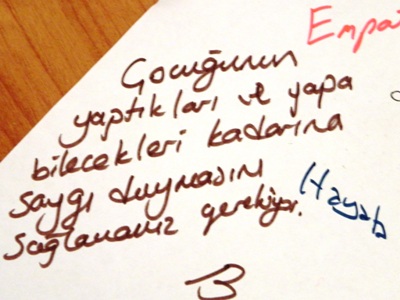 Empa
Çocuğunun
yaptıkları ve yapa
bilecekleri kadarına
saygı duymasını
sağlamanız gerekiyor.
Hayab
B